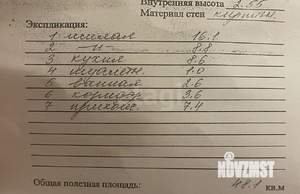 Внутренняя высота 2.55
Материал стен кирпичн.
Экспликация:
1 жилая 16.1
2 -"- 8.8
3 кухня 8.6
4 туалет 1.0
5 ванная 2.6
6 коридор 3.6
7 прихож. 7.4
Общая полезная площадь: 48.1 кв.м
NOVZHIST